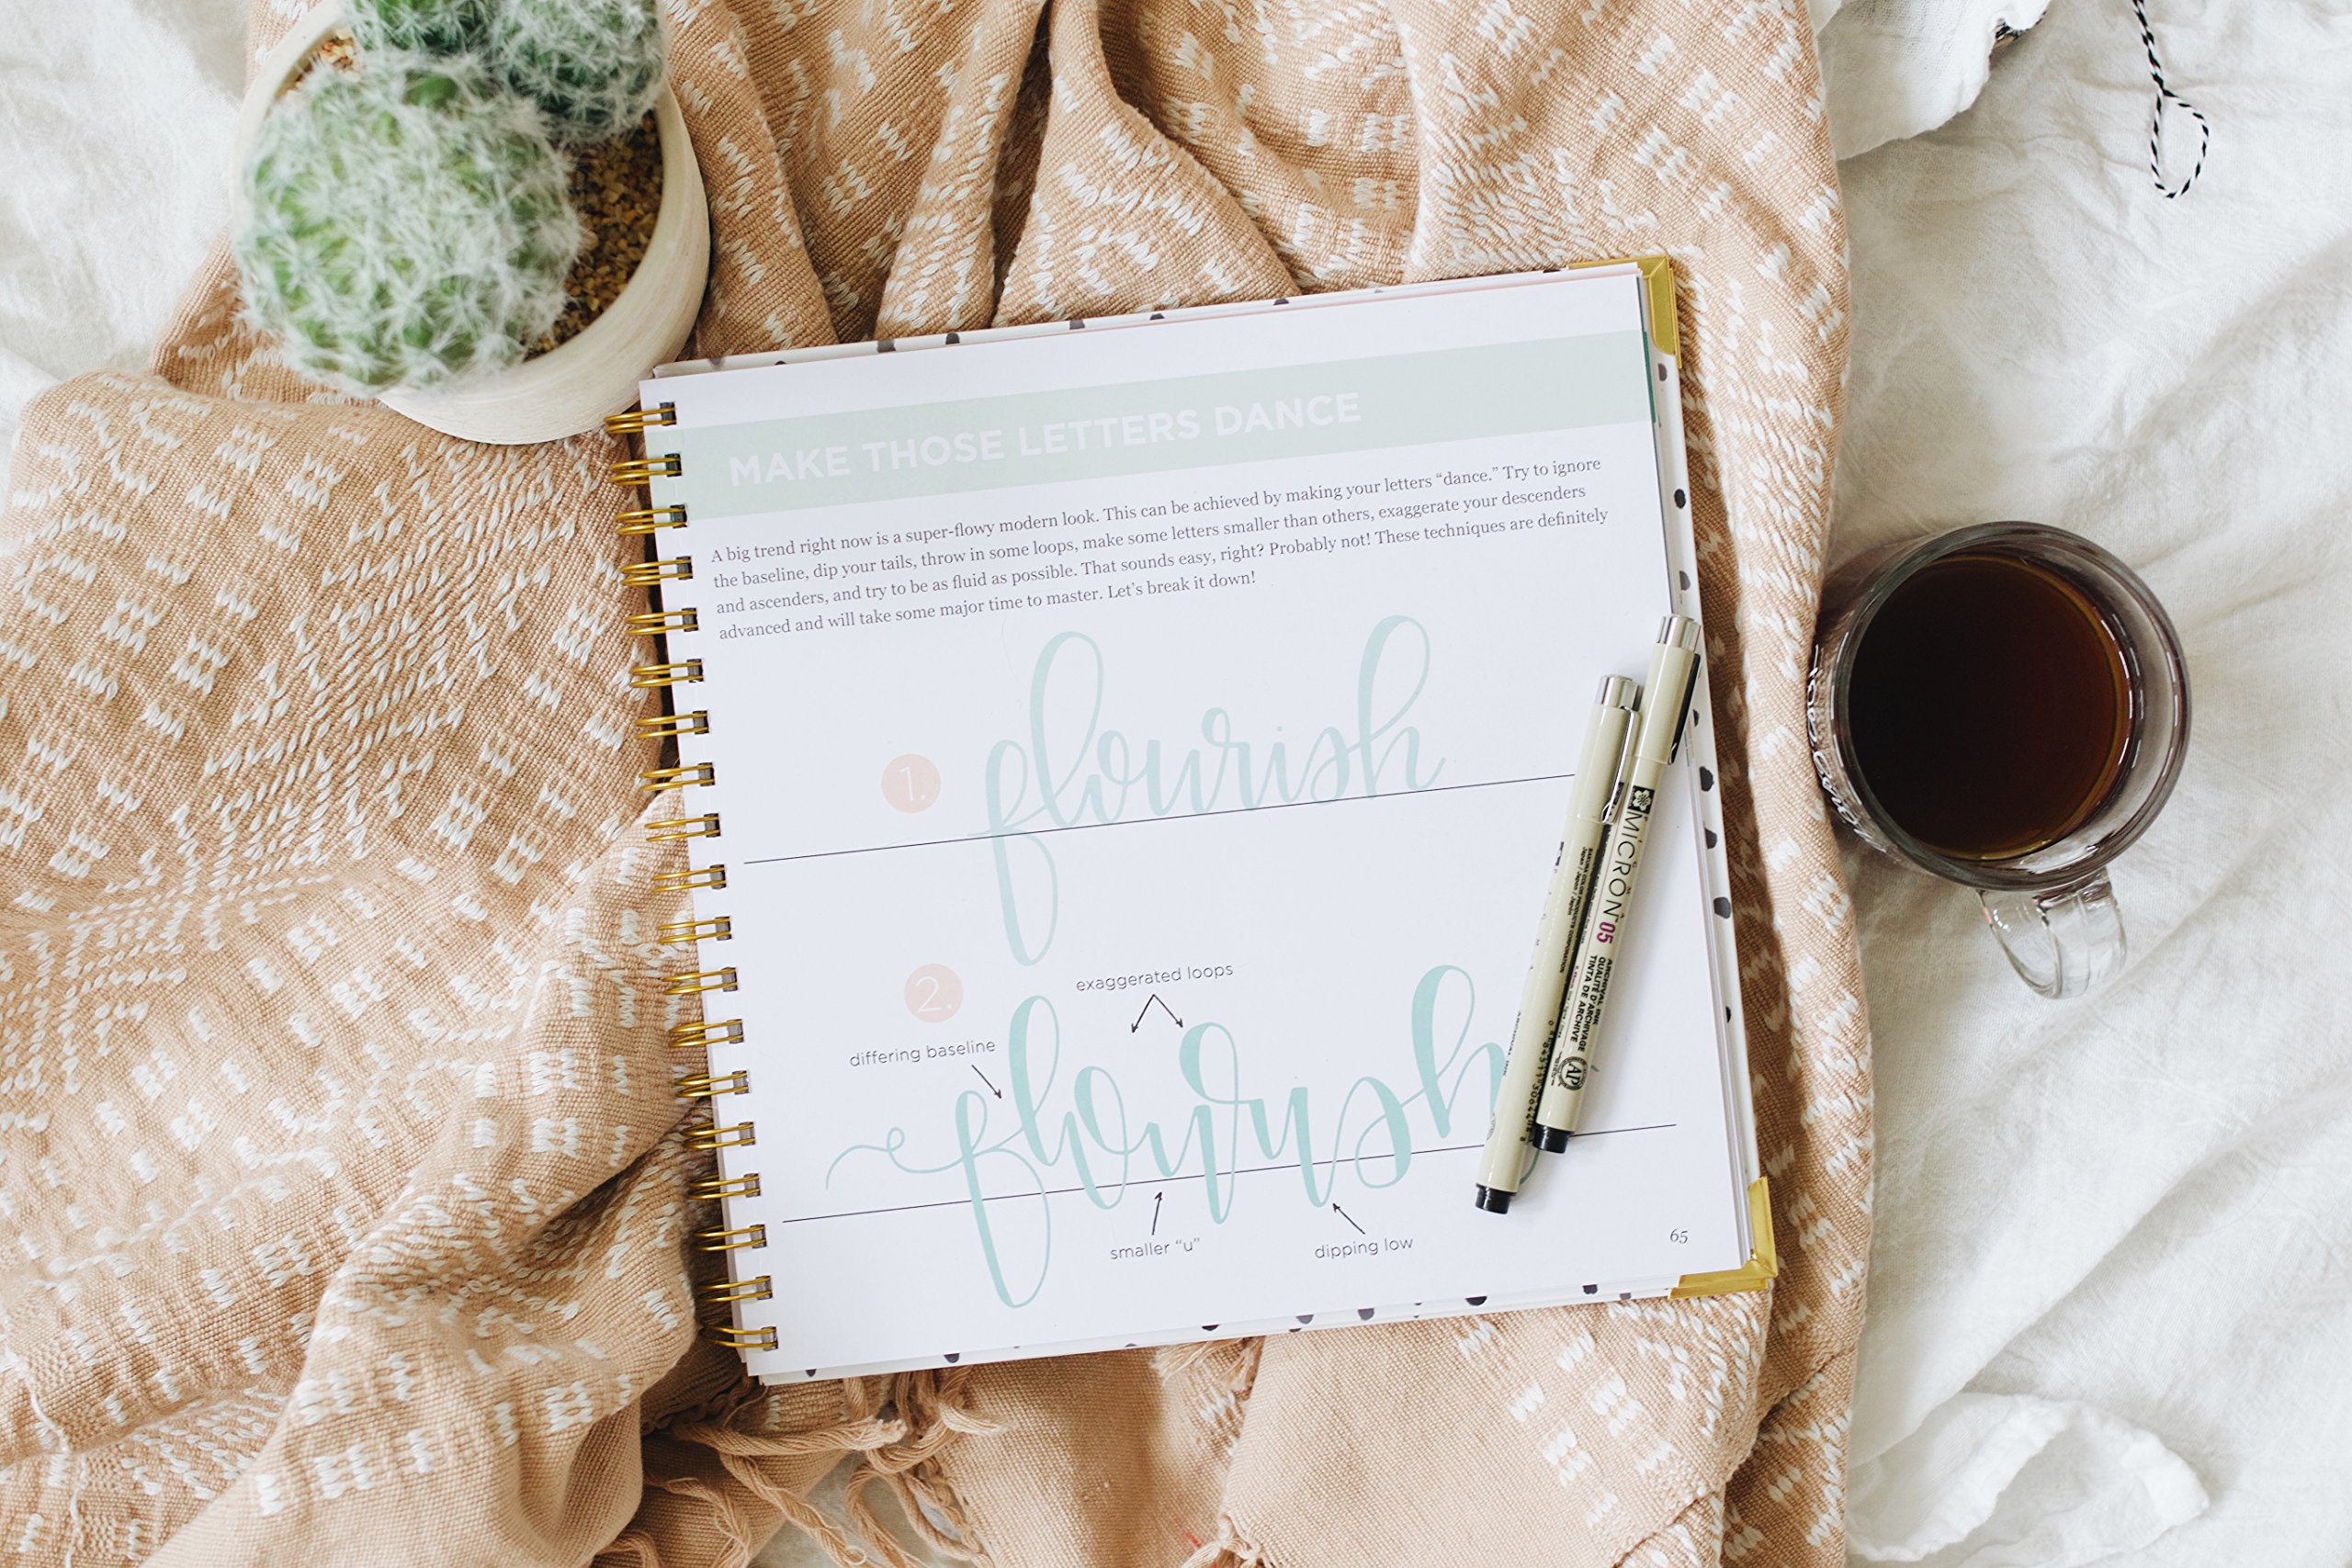 MAKE THOSE LETTERS DANCE
A big trend right now is a super-flowy modern look. This can be achieved by making your letters “dance.” Try to ignore
the baseline, dip your tails, throw in some loops, make some letters smaller than others, exaggerate your descenders
and ascenders, and try to be as fluid as possible. That sounds easy, right? Probably not! These techniques are definitely
advanced and will take some major time to master. Let’s break it down!
1.
flourish
2.
exaggerated loops
differing baseline
flourish
smaller “u”
dipping low
65
MICRON 05
SAKURA COLOR PRODUCTS CORPORATION
Japan / Japon
ARCHIVAL INK
QUALITÉ D'ARCHIVAGE
TINTA DE ARCHIVE
AP